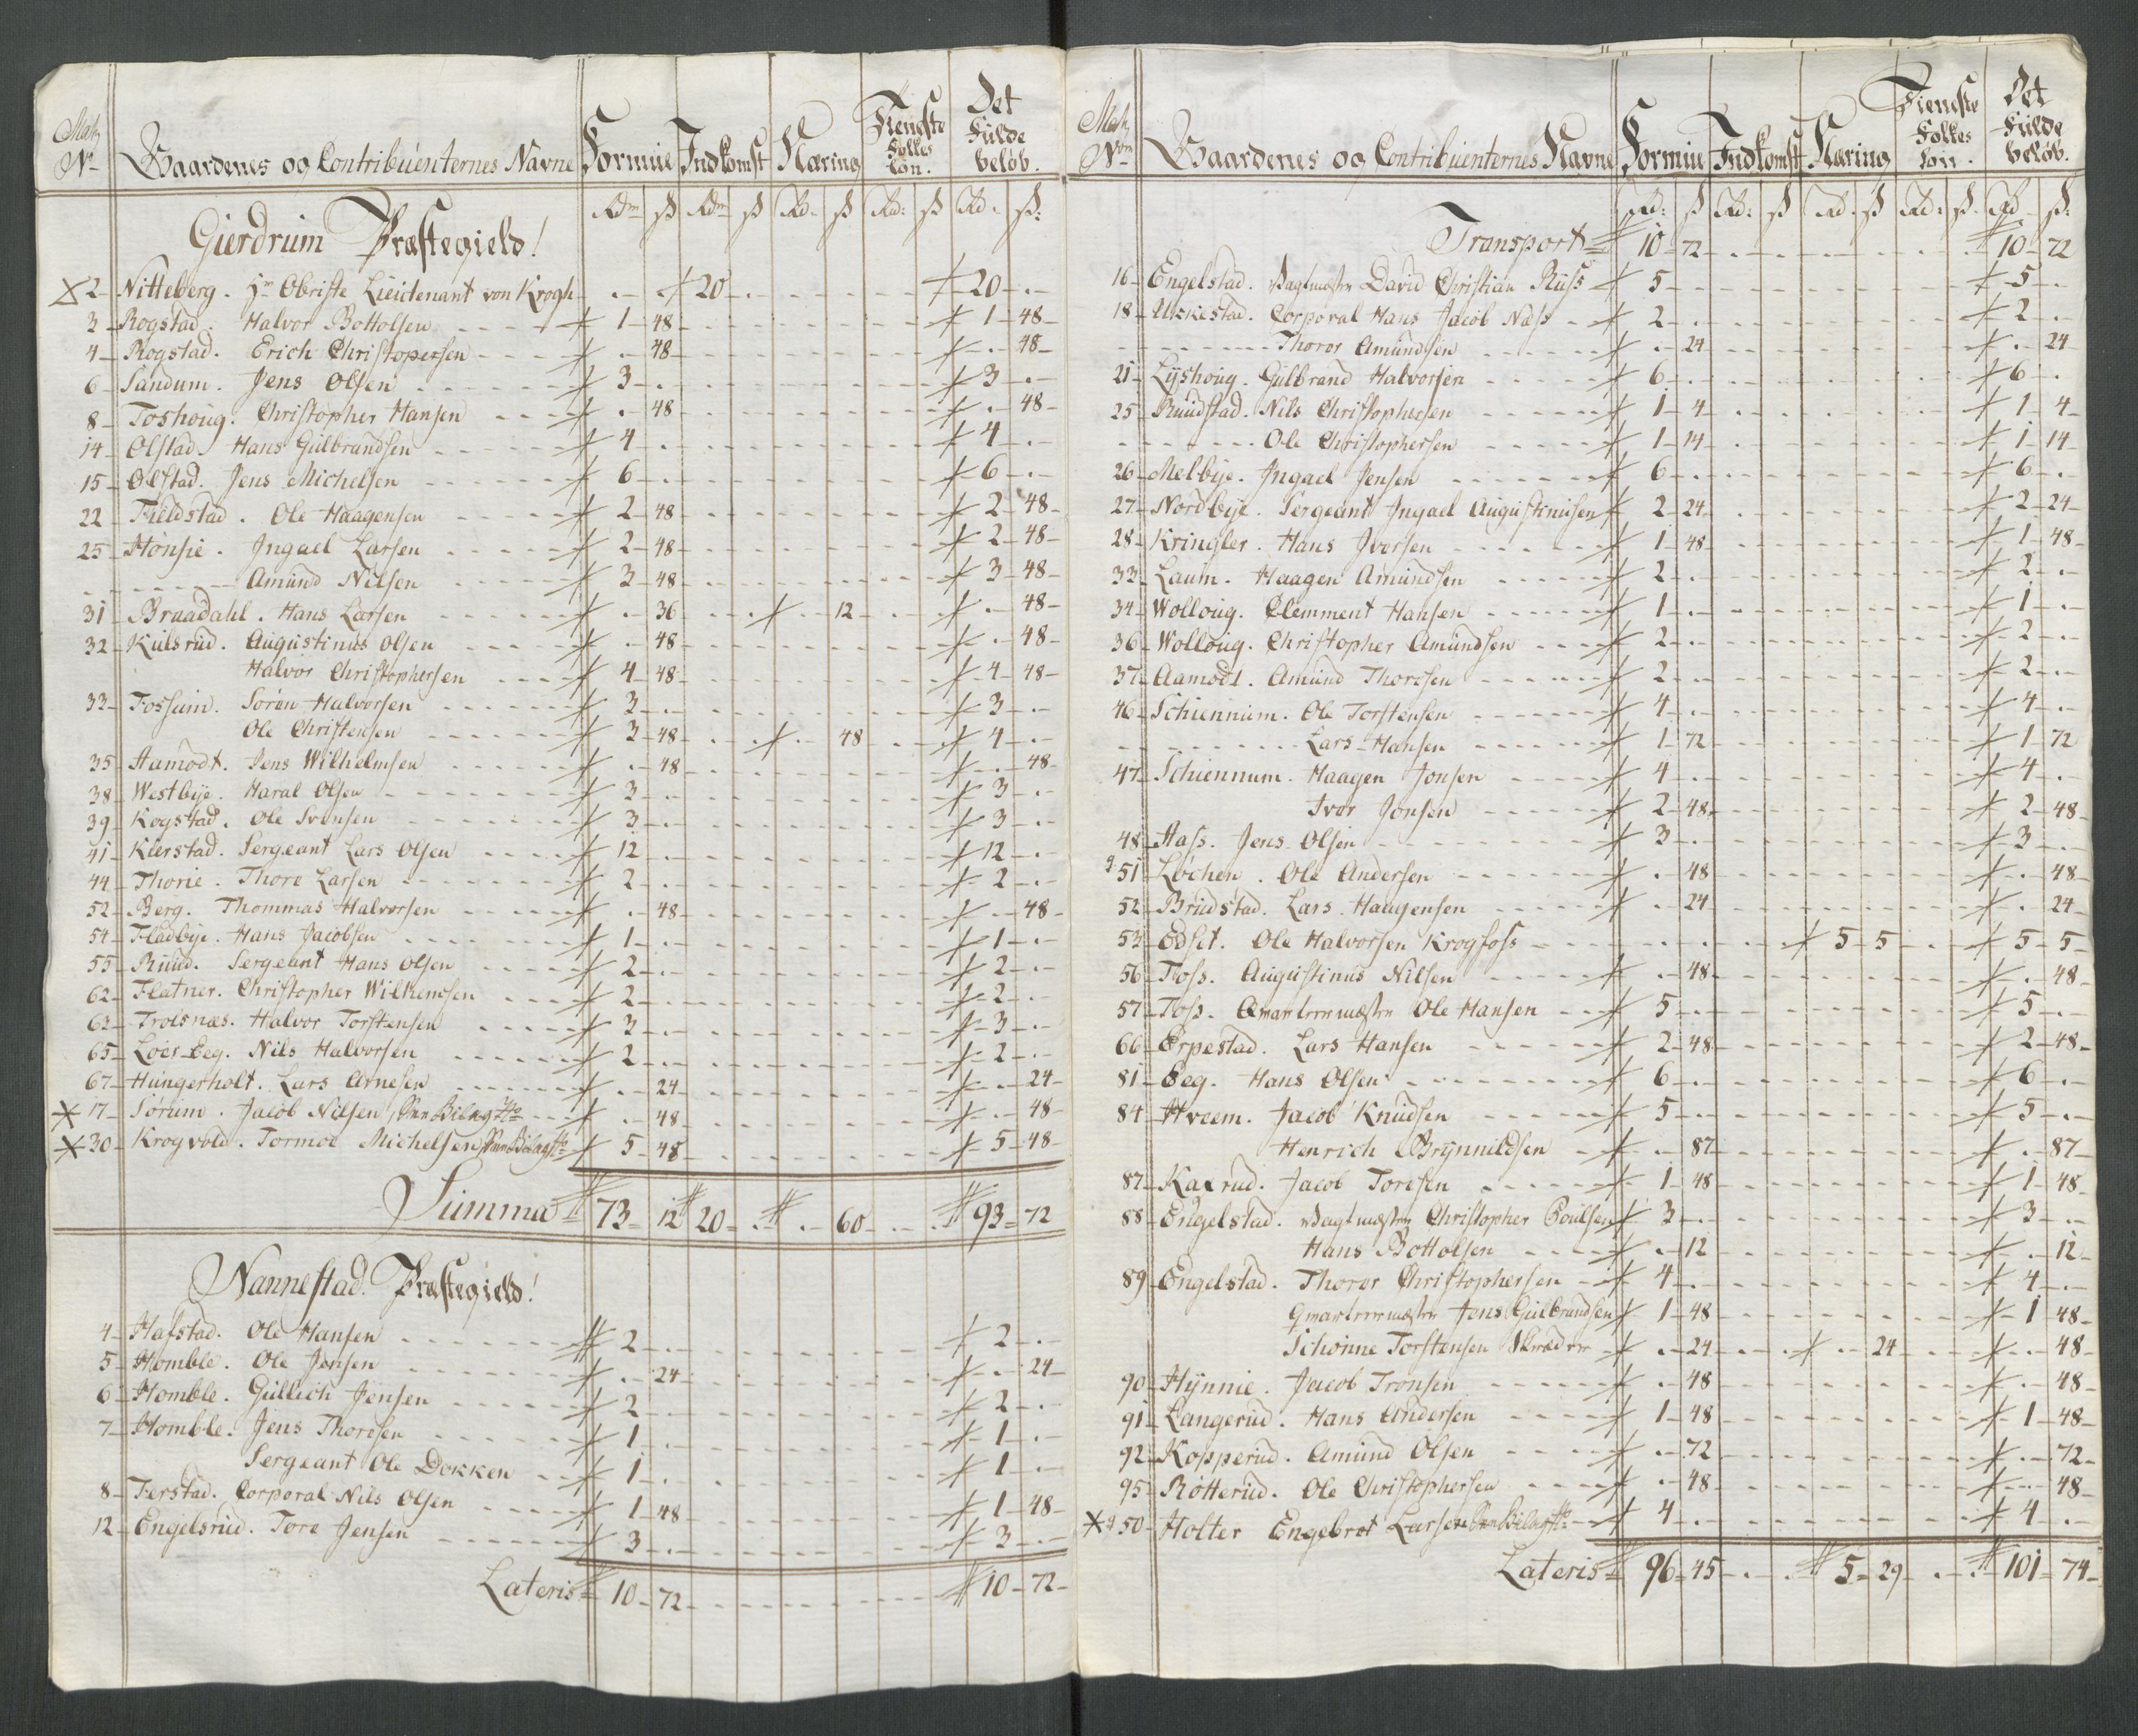 Mat. No Gaardenes og Contribuenternes Navne Formue Indkomst Næring Tieneste Folkes løn. Det Fulde beløb.
Rdr ß Rdr ß Rd. ß Rd: ß Rd. ß:
Gierdrum Præstegield!
2 Nitteberg. Hr Obriste Lieutenant von Krogh 20 20
3 Rogstad. Halvor Bottolsen 1 48 1 48
4 Rogstad. Erich Christopersen 48 48
6 Sandum. Jens Olsen 3 3
8 Toshoug. Christopher Hansen 48 48
14 Olstad. Hans Gulbrandsen 4 4
15 Ølstad. Jens Michelsen 6 6
22 Fieldstad. Ole Haagensen 2 48 2 48
25 Hønsie. Ingael Larsen 2 48 2 48
Amund Nilsen 3 48 3 48
31 Braadahl. Hans Larsen 36 12 48
32 Kulsrud. Augustinus Olsen 48 48
Halvor Christophersen 4 48 4 48
33 Fossum. Søren Halvorsen 3 3
Ole Christensen 3 48 48 4
35 Aamodt. Jens Wilhelmsen 48 48
38 Westbye. Haral Olsen 3 3
39 Kogstad. Ole Svensen 3 3
41 Kierstad. Sergeant Lars Olsen 12 12
44 Thorie. Thore Larsen 2 2
52 Berg. Thommas Halvorsen 48 48
54 Fladbye. Hans Jacobsen 1 1
55 Ruud. Sergeant Hans Olsen 2 2
62 Flatner. Christopher Wilhemsen 2 2
63 Troisnæs. Halvor Torstensen 3 3
65 Løer-Eeg. Nils Halvorsen 2 2
67 Hungerholt. Lars Arnesen 24 24
17 Sørum. Jacob Nilsen 48 48
30 Krogvold. Tormoe Michelsen 5 48 5 48
Summa 73 12 20 60 93 72
Nannestad Præstegield!
4 Hafstad. Ole Hansen 2 2
5 Homble. Ole Jensen 24 24
6 Homble. Gullich Jensen 2 2
7 Homble. Jens Thoresen 1 1
Sergeant Ole Dokken 1 1
8 Ferstad. Corporal Nils Olsen 1 48 1 48
12 Engelsrud. Tore Jensen 3 3
Lateris 10 72 10 72
Mat. Nrm Gaardenes og Contribuenternes Navne Formue Indkomst Næring Tieneste Folkes løn. Det Fulde beløb.
Rd: ß Rd: ß Rd. ß Rd: ß. Rd ß:
Transport 10 72 10 72
16 Engelstad. Vagtmester David Christian Russ 5 5
18 Ukkestad. Corporal Hans Jacob Næss 2 2
Thoror Amundsen 24 24
21 Lyshoug. Gulbrand Halvorsen 6 6
25 Ruudstad. Nils Christophersen 1 4 1 4
Ole Christophersen 1 14 1 14
26 Melbye. Ingael Jensen 6 6
27 Nordbye. Sergeant Ingael Augustinusen 2 24 2 24
28 Kringler. Hans Iversen 1 48 1 48
33 Laum. Haagen Amundsen 2 2
34 Wolloug. Clemment Hansen 1 1
36 Wolloug. Christopher Amundsen 2 2
37 Aamodt. Amund Thoresen 2 2
46 Schiennum. Ole Torstensen 4 4
Lars Hansen 1 72 1 72
47 Schiennum. Haagen Jonsen 4 4
Ivar Jonsen 2 48 2 48
48 Aass. Jens Olsen 3 3
51 Løchen. Ole Andersen 48 48
52 Brudstad. Lars Haagensen 24 24
53 Edset. Ole Halvorsen Krogfoss 5 5 5 5
56 Foss. Augustinus Nilsen 48 48
57 Foss. Qvarteermester Ole Hansen 5 5
66 Erpestad. Lars Hansen 2 48 2 48
81 Eeg. Hans Olsen 6 6
84 Hveem. Jacob Knudsen 5 5
Henrich Brynnildsen 87 87
87 Kaxrud. Jacob Toresen 1 48 1 48
88 Engelstad. Vagtmester Christopher Poulsen 3 3
Hans Bottolsen 12 12
89 Engelstad. Thoror Christophersen 4 4
Qvarteermester Jens Gulbrandsen 1 48 1 48
Schønne Torstensen Skræder 24 24 48
90 Hynnie. Jacob Tronsen 48 48
91 Langerud. Hans Andersen 1 48 1 48
92 Kopperud. Amund Olsen 72 72
95 Røtterud. Ole Christophersen 48 48
50 Holter Engebret Larsen 4 4
Lateris 96 45 5 29 101 74